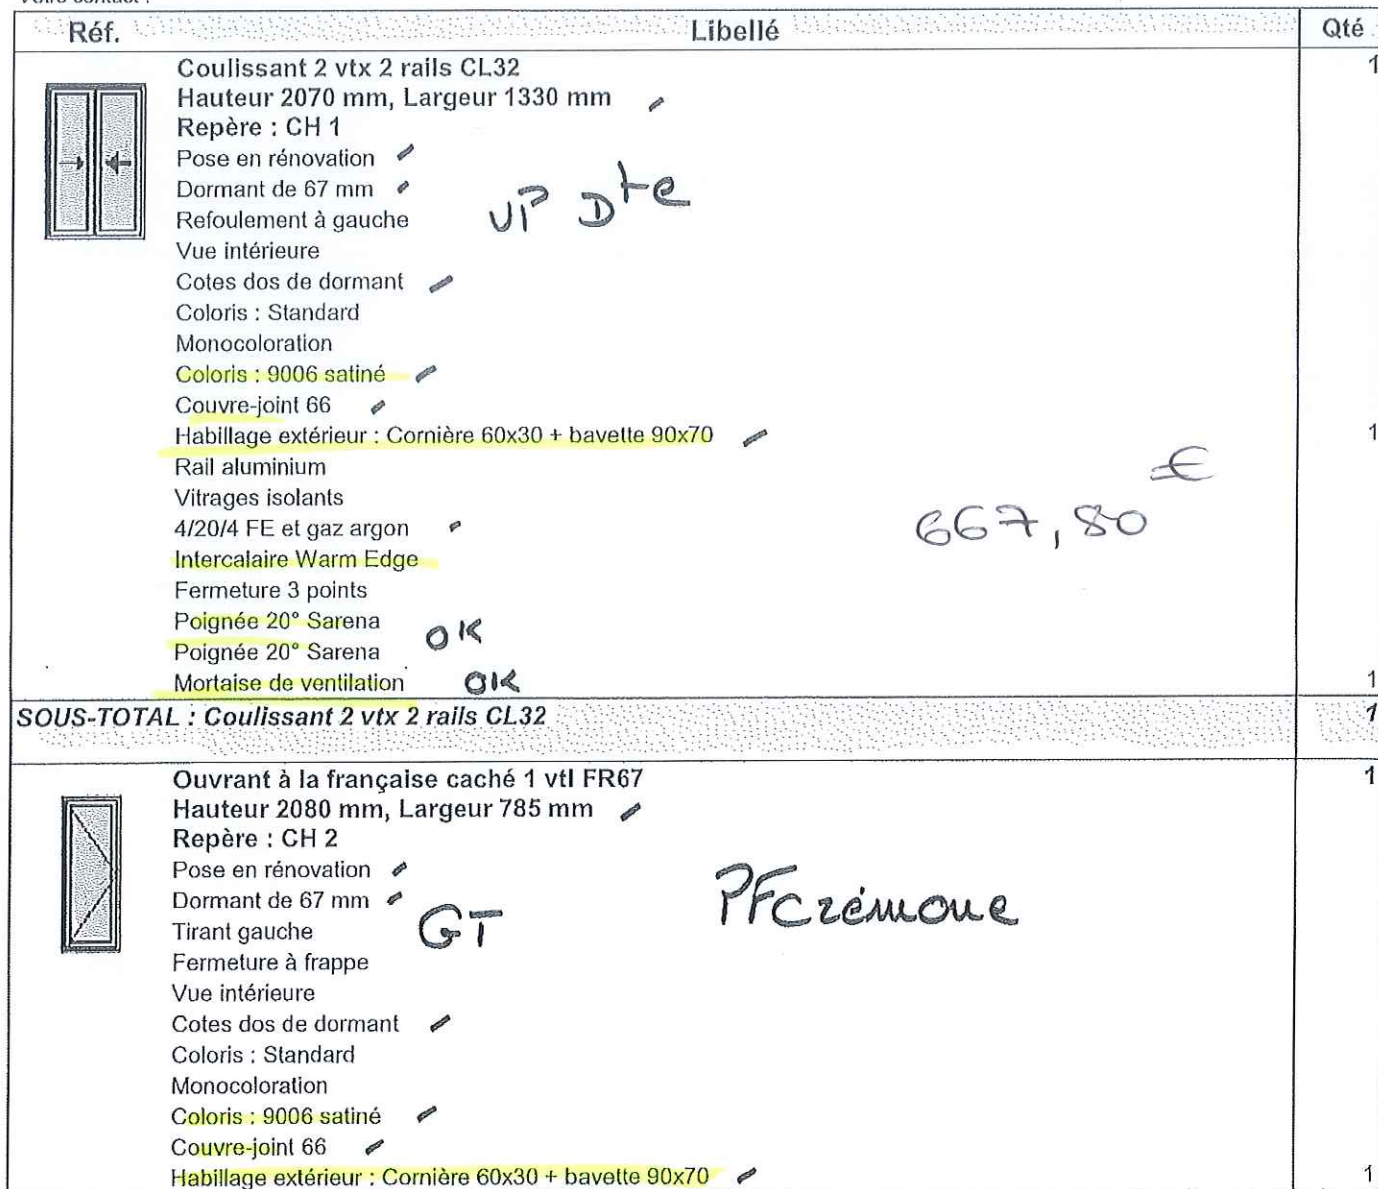 Réf. Libellé Qté
Coulissant 2 vtx 2 rails CL32 1
Hauteur 2070 mm, Largeur 1330 mm
Repère : CH 1
Pose en rénovation
Dormant de 67 mm
VP Dte
Refoulement à gauche
Vue intérieure
Cotes dos de dormant
Coloris : Standard
Monocoloration
Coloris : 9006 satiné
Couvre-joint 66
Habillage extérieur : Cornière 60x30 + bavette 90x70 1
Rail aluminium
Vitrages isolants
667,80 €
4/20/4 FE et gaz argon
Intercalaire Warm Edge
Fermeture 3 points
Poignée 20° Sarena
OK
Poignée 20° Sarena
Mortaise de ventilation OK 1
SOUS-TOTAL : Coulissant 2 vtx 2 rails CL32 1
Ouvrant à la française caché 1 vtl FR67 1
Hauteur 2080 mm, Largeur 785 mm
Repère : CH 2
Pose en rénovation
Dormant de 67 mm
PF crémone
Tirant gauche GT
Fermeture à frappe
Vue intérieure
Cotes dos de dormant
Coloris : Standard
Monocoloration
Coloris : 9006 satiné
Couvre-joint 66
Habillage extérieur : Cornière 60x30 + bavette 90x70 1